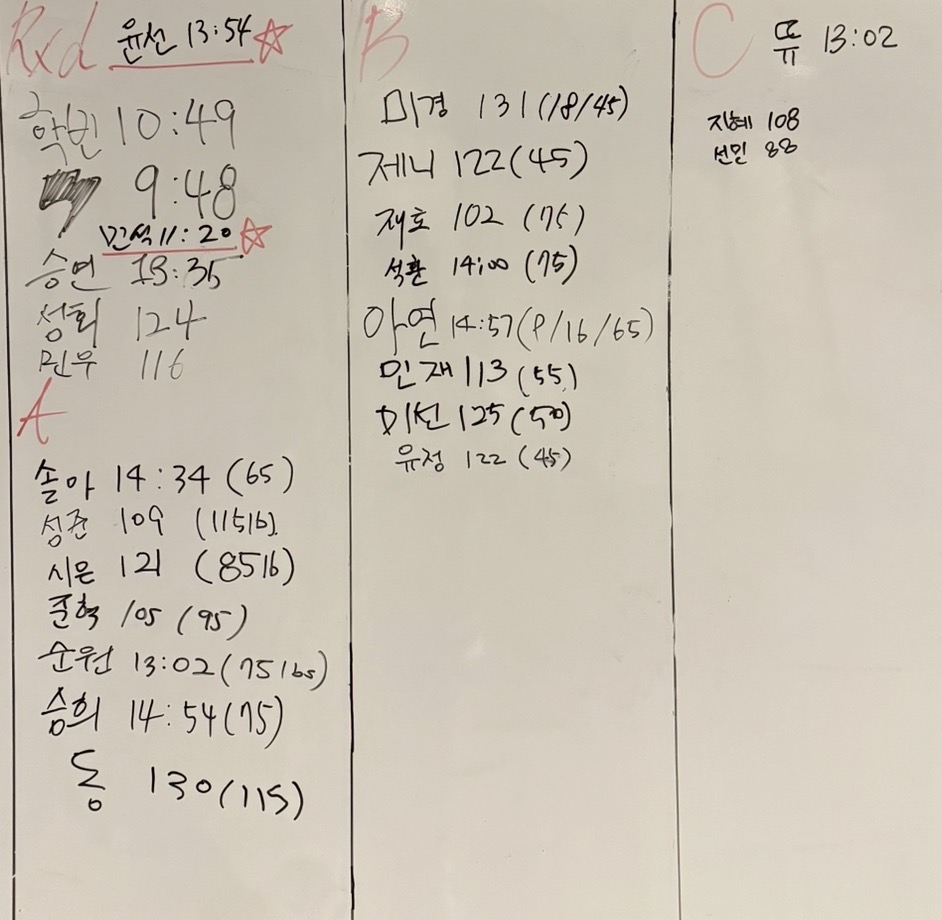 Rxd 윤선 13:54 ☆
학빈 10:49
9:48
민석 11:20 ☆
승연 13:35
성회 124
민우 116
A
솔아 14:34 (65)
성준 109 (115lb)
시은 121 (85lb)
준혁 105 (95)
순원 13:02 (75lbs)
승희 14:54 (75)
동 130 (115)
B
미경 131 (18/45)
제니 122 (45)
재호 102 (75)
석환 14:00 (75)
아연 14:57 (8/16/65)
민재 113 (55)
미선 125 (50)
유정 122 (45)
C 쮸 13:02
지혜 108
선민 88